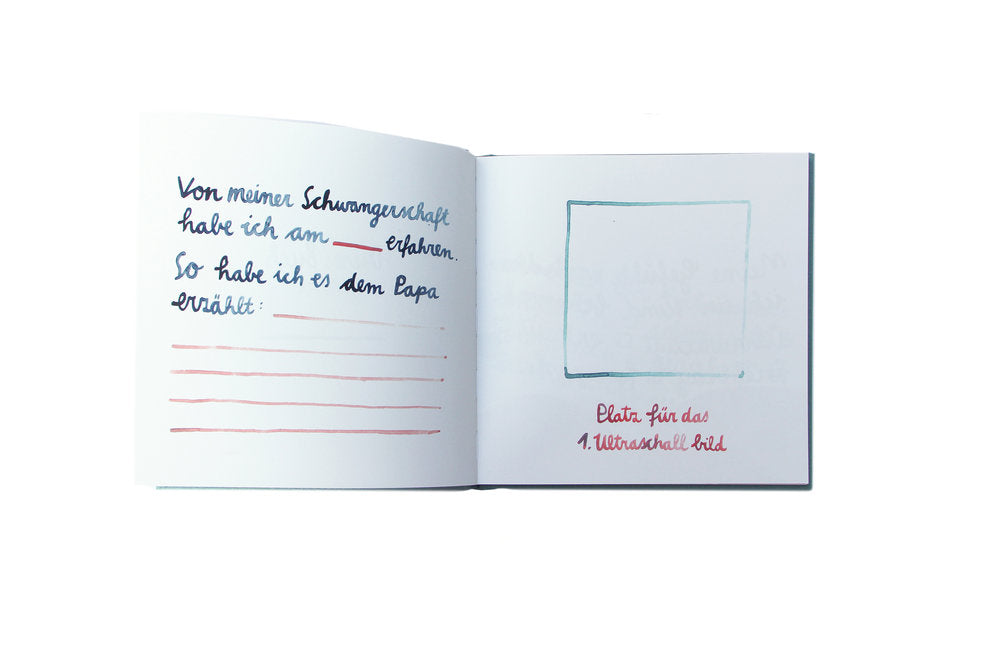 Von meiner Schwangerschaft
habe ich am ___ erfahren.
So habe ich es dem Papa
erzählt:
Platz für das
1. Ultraschall bild